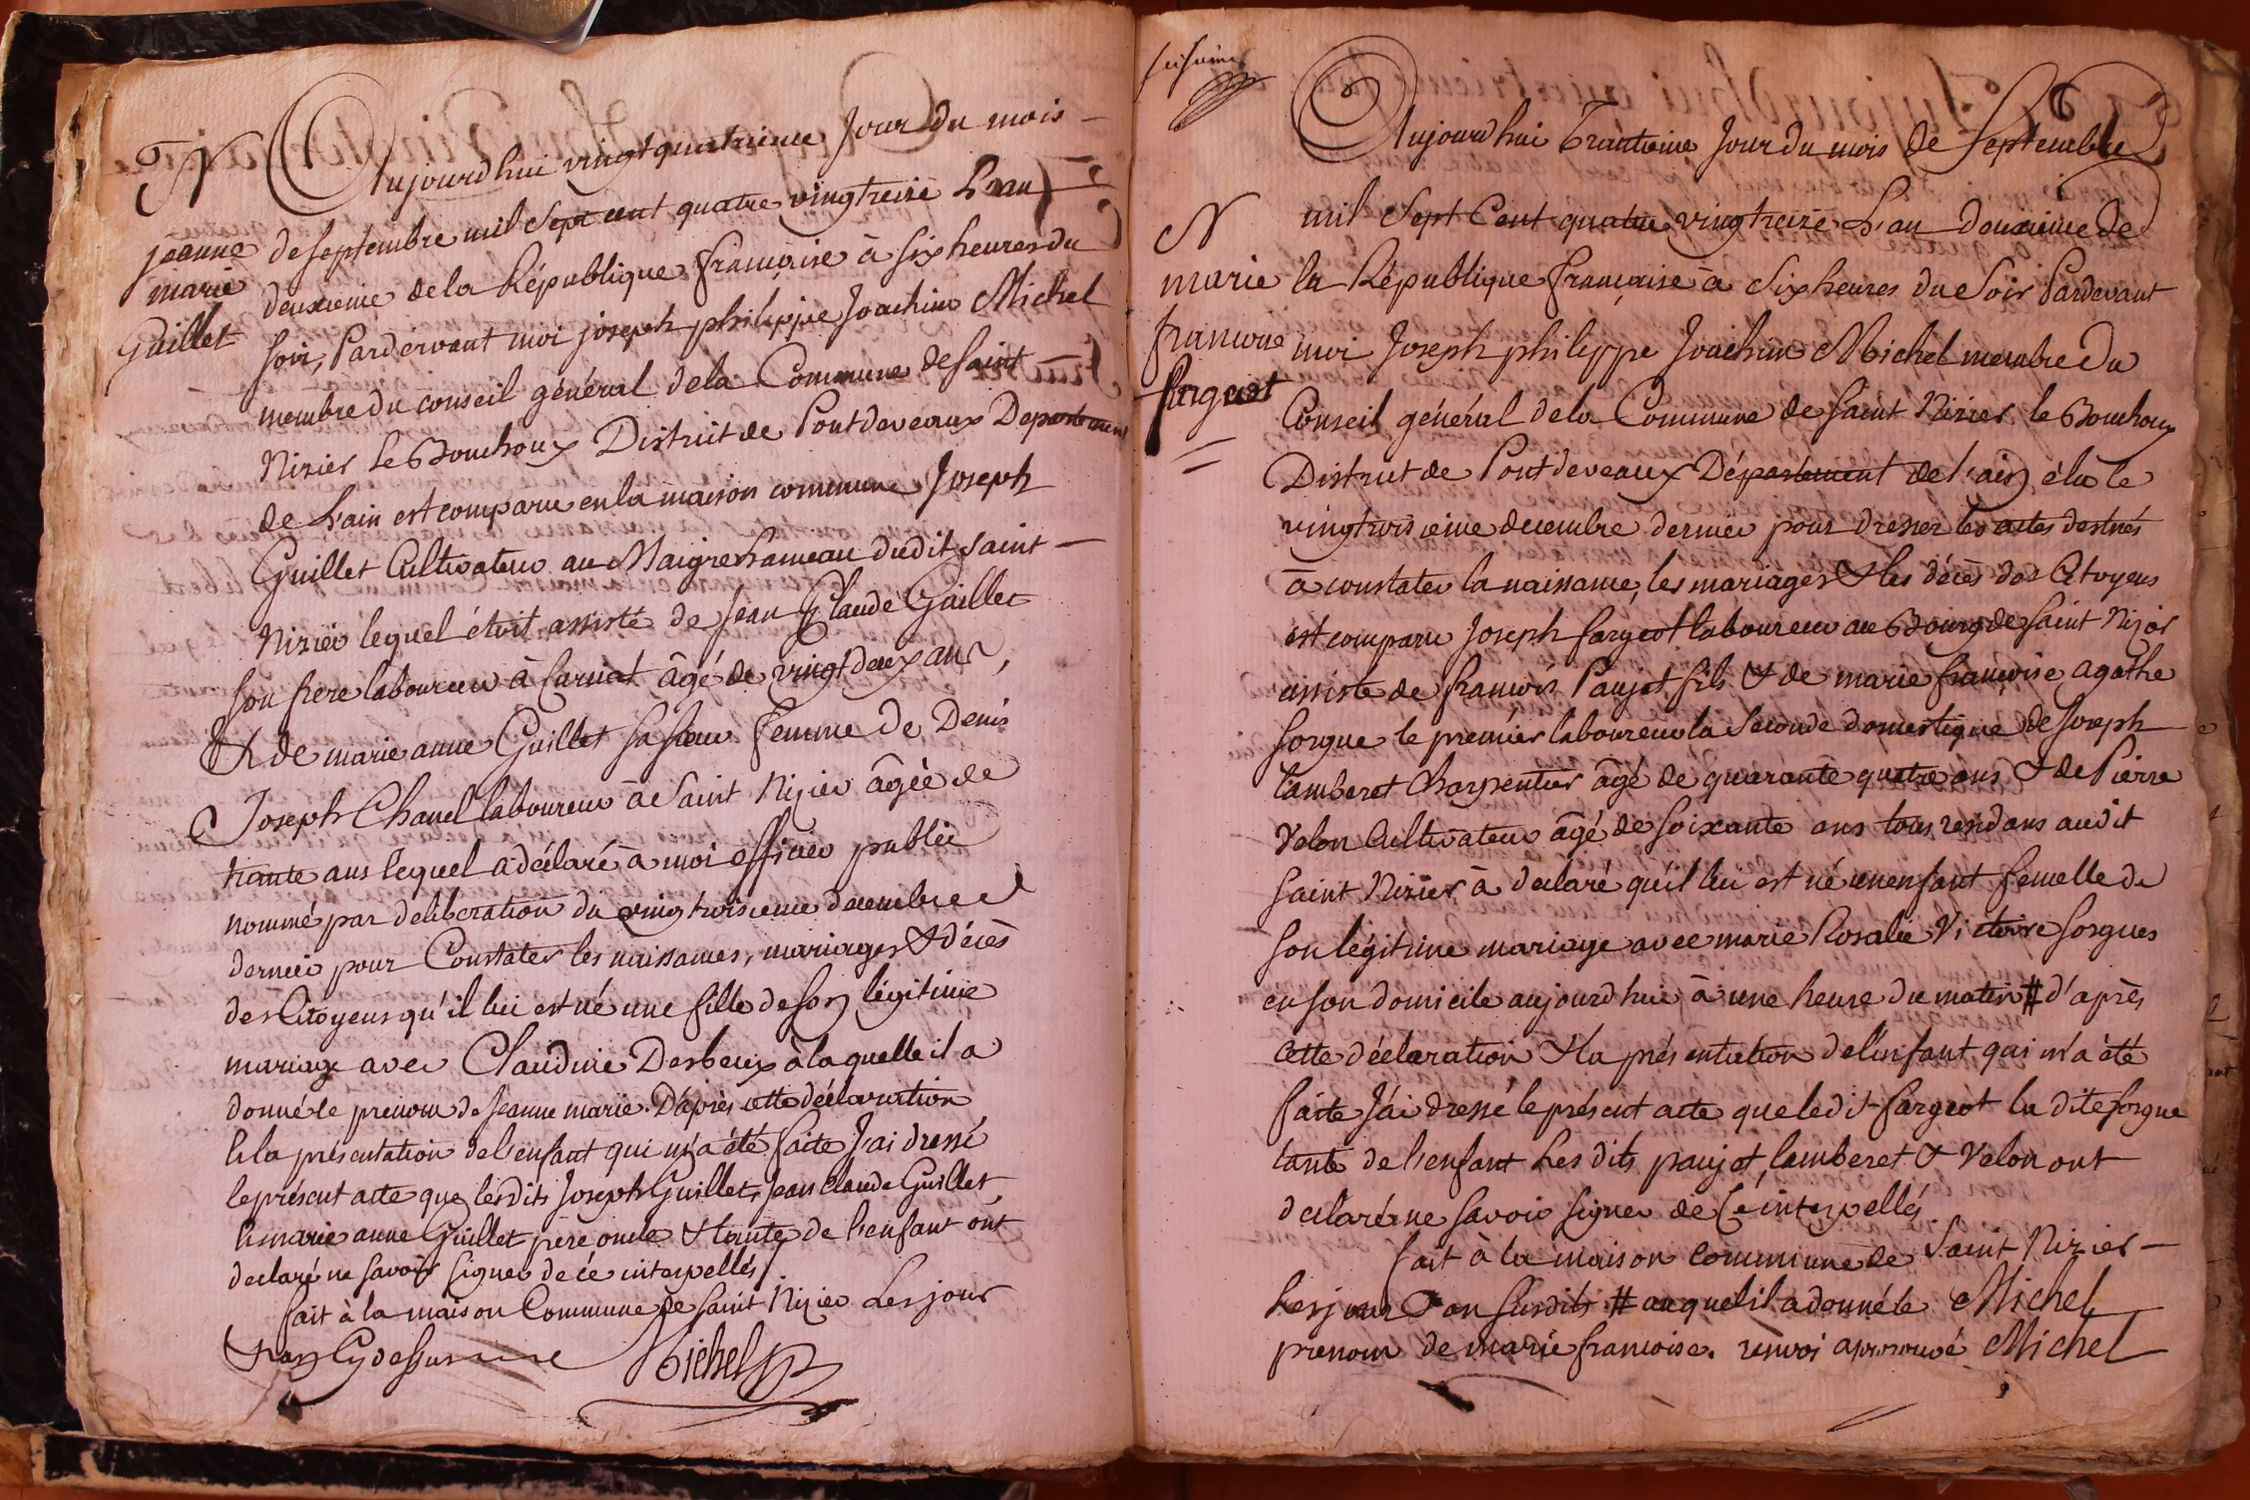 N
jeanne
marie
Guillet
Aujourdhui vingtquatrieme Jour du mois
de septembre mil sept cent quatre vingtreize L'an
deuxieme de la République françoise à six heures du
soir, Pardervant moi joseph philippe Joachim Michel
membre du conseil général de la Commune de saint
Nizier le Bouchoux District de Pontdeveaux Departement
de L'ain est comparu en la maison commune Joseph
Guillet Cultivateur au Maigre hameau dudit saint
Nizier lequel étoit assisté de Jean Claude Guillet
son frere laboureur à Curciat âgé de vingt deux ans,
& de marie anne Guillet sa sœur femme de Denis
Joseph Chanel laboureur à Saint Nizier âgée de
trante ans lequel a déclaré à moi officier public
nommé par deliberation du vingtroisieme decembre
dernier pour Constater les naissances, mariages & décès
des Citoyens qu'il lui est né une fille de son légitime
mariage avec Claudine Desbeux à laquelle il a
donné le prenom de Jeanne marie. D'après cette déclaration
& la présentation de l'enfant qui m'a été faite J'ai dressé
le présent acte que lesdits Joseph Guillet, Jean Claude Guillet,
& marie anne Guillet pere oncle & tante de l'enfant ont
declaré ne savoir signer de ce interpellés
fait à la maison Commune de saint Nizier Les jour
& an Cy dessus Michel
N
marie
francoise
fargeot
Aujourdhui Trantieme Jour du mois de Septembre
mil Sept Cent quatre vingtreize L'an Deuxieme de
la République françoise à Six heures du Soir Pardevant
moi Joseph philippe Joachim Michel membre du
Conseil général de la Commune de Saint Nizier le Bouchoux
District de Pontdeveaux Département de l'ain élu le
vingtroisieme decembre dernier pour dresser les actes destinés
à constater la naissance, les mariages & les décès des Citoyens
est comparu Joseph fargeot laboureur au Bourg de Saint Nizier
assisté de françois Paujet fils & de marie françoise agathe
sorgue le premier laboureur la seconde domestique de Joseph
lamberet Charpentier âgé de quarante quatre ans & de Pierre
Velon Cultivateur âgé de soixante ans tous residans audit
Saint Nizier, à declaré qu'il lui est né un enfant femelle de
son légitime mariage avec marie Rosalie Victoire sorgues
en son domicile aujourdhui à une heure du matin # d'après
Cette déclaration & la présentation de l'enfant qui m'a été
faite J'ai dressé le présent acte que ledit fargeot la dite sorgue
tante de l'enfant Les dits paujet, lamberet & Velon ont
declaré ne savoir signer de Ce interpellés
fait à la maison commune de Saint Nizier
Les jour & an susdits # auquel il a donné le Michel
prenom de marie francoise. renvoi approuvé Michel